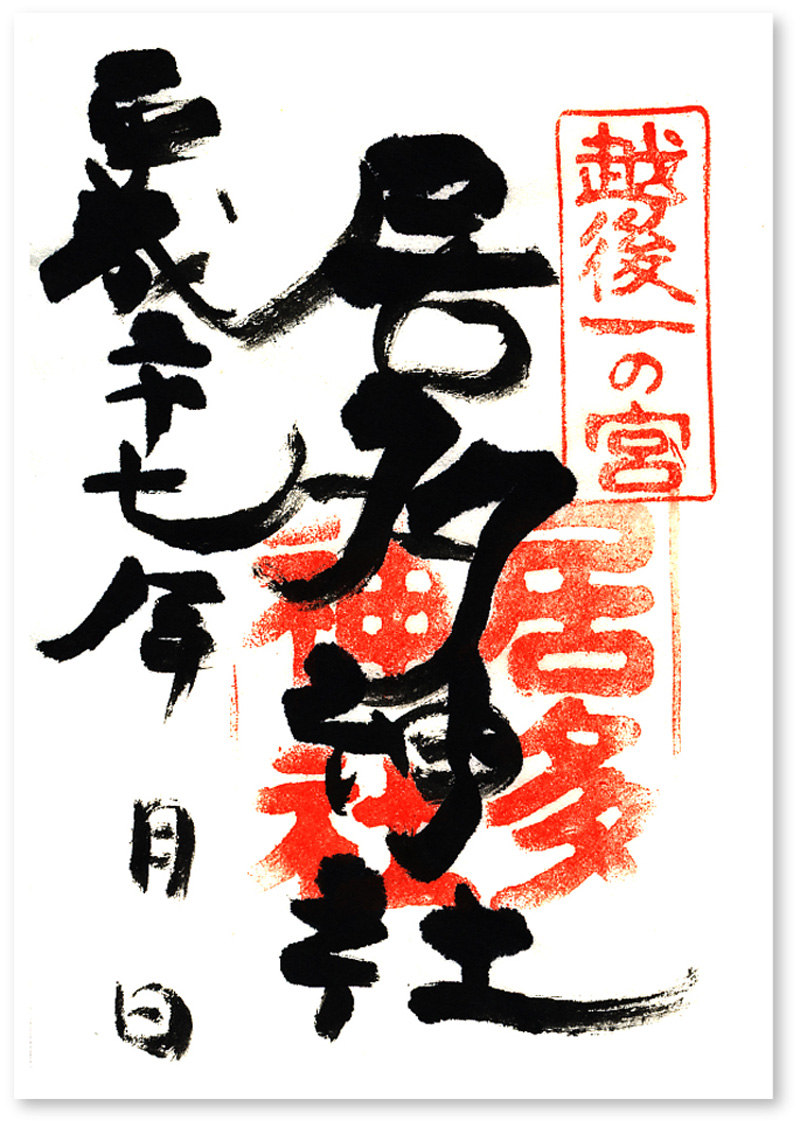 越後一の宮
居多神社
居多
神社
平成二十七年 月 日